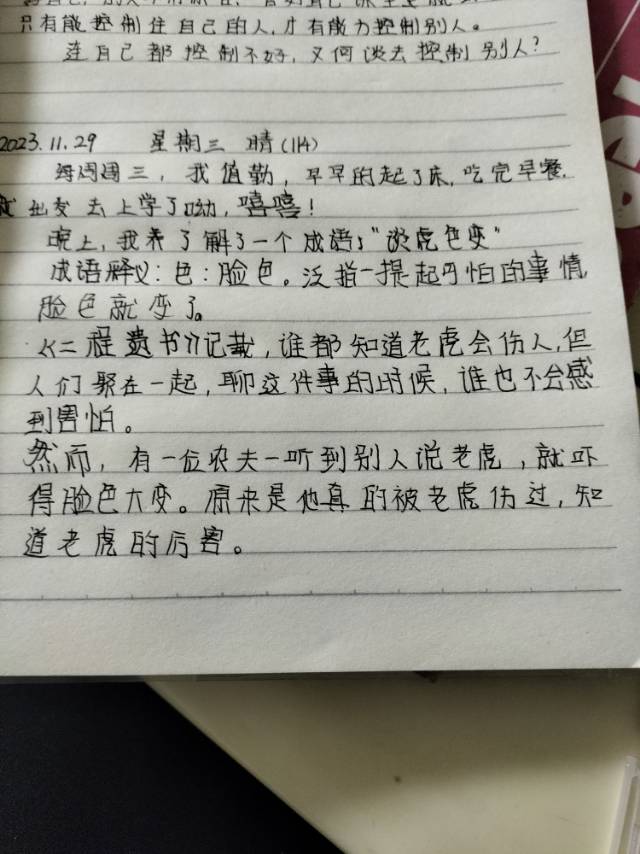 只有能控制住自己的人,才有能力控制别人。
连自己都控制不好,又何谈去控制别人?
2023.11.29 星期三 晴(114)
每周周三,我值勤,早早的起了床,吃完早餐,
就出发去上学了呦,嘻嘻!
晚上,我来了解了一个成语:"谈虎色变"
成语释义:色:脸色。泛指一提起可怕的事情,
脸色就变了。
《二程遗书》记载,谁都知道老虎会伤人,但
人们聚在一起,聊这件事的时候,谁也不会感
到害怕。
然而,有一位农夫一听到别人说老虎,就吓
得脸色大变。原来是他真的被老虎伤过,知
道老虎的厉害。